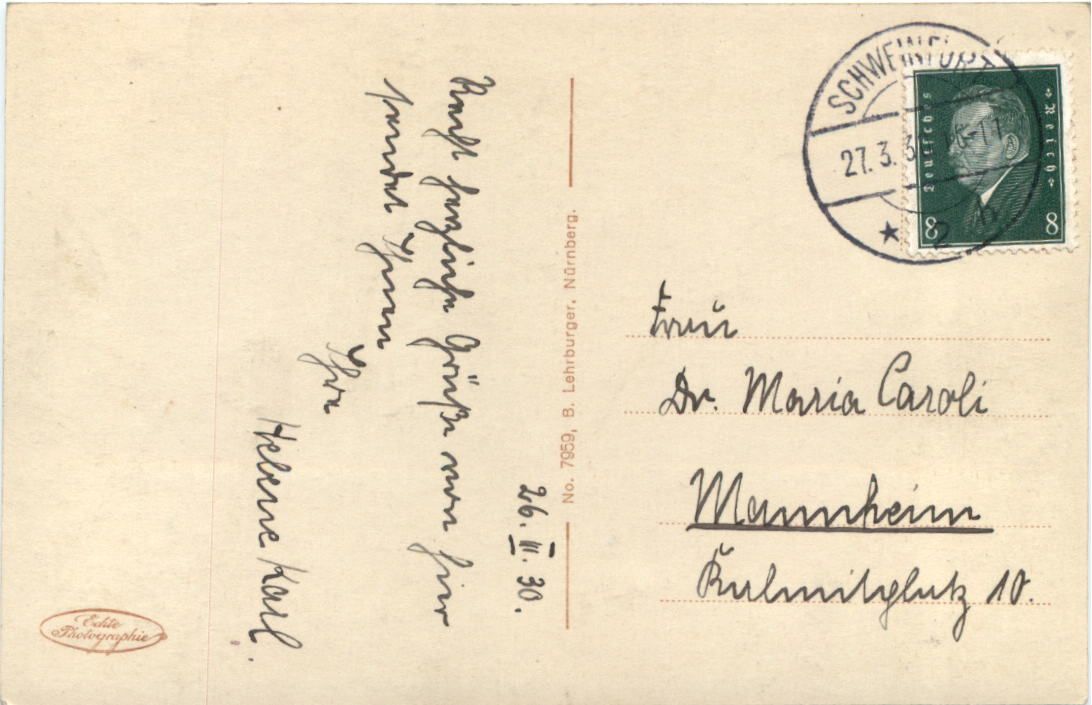 26. III. 30.
Recht herzliche Grüße von hier
sendet Ihnen
Ihre
Helene Karl.
Echte
Photographie
No. 7959, B. Lehrburger, Nürnberg.
SCHWEINFURT
27. 3. 3
* 2
Deutsches Reich
8 8
Frau
Dr. Maria Caroli
Mannheim
Kalmitplatz 10.